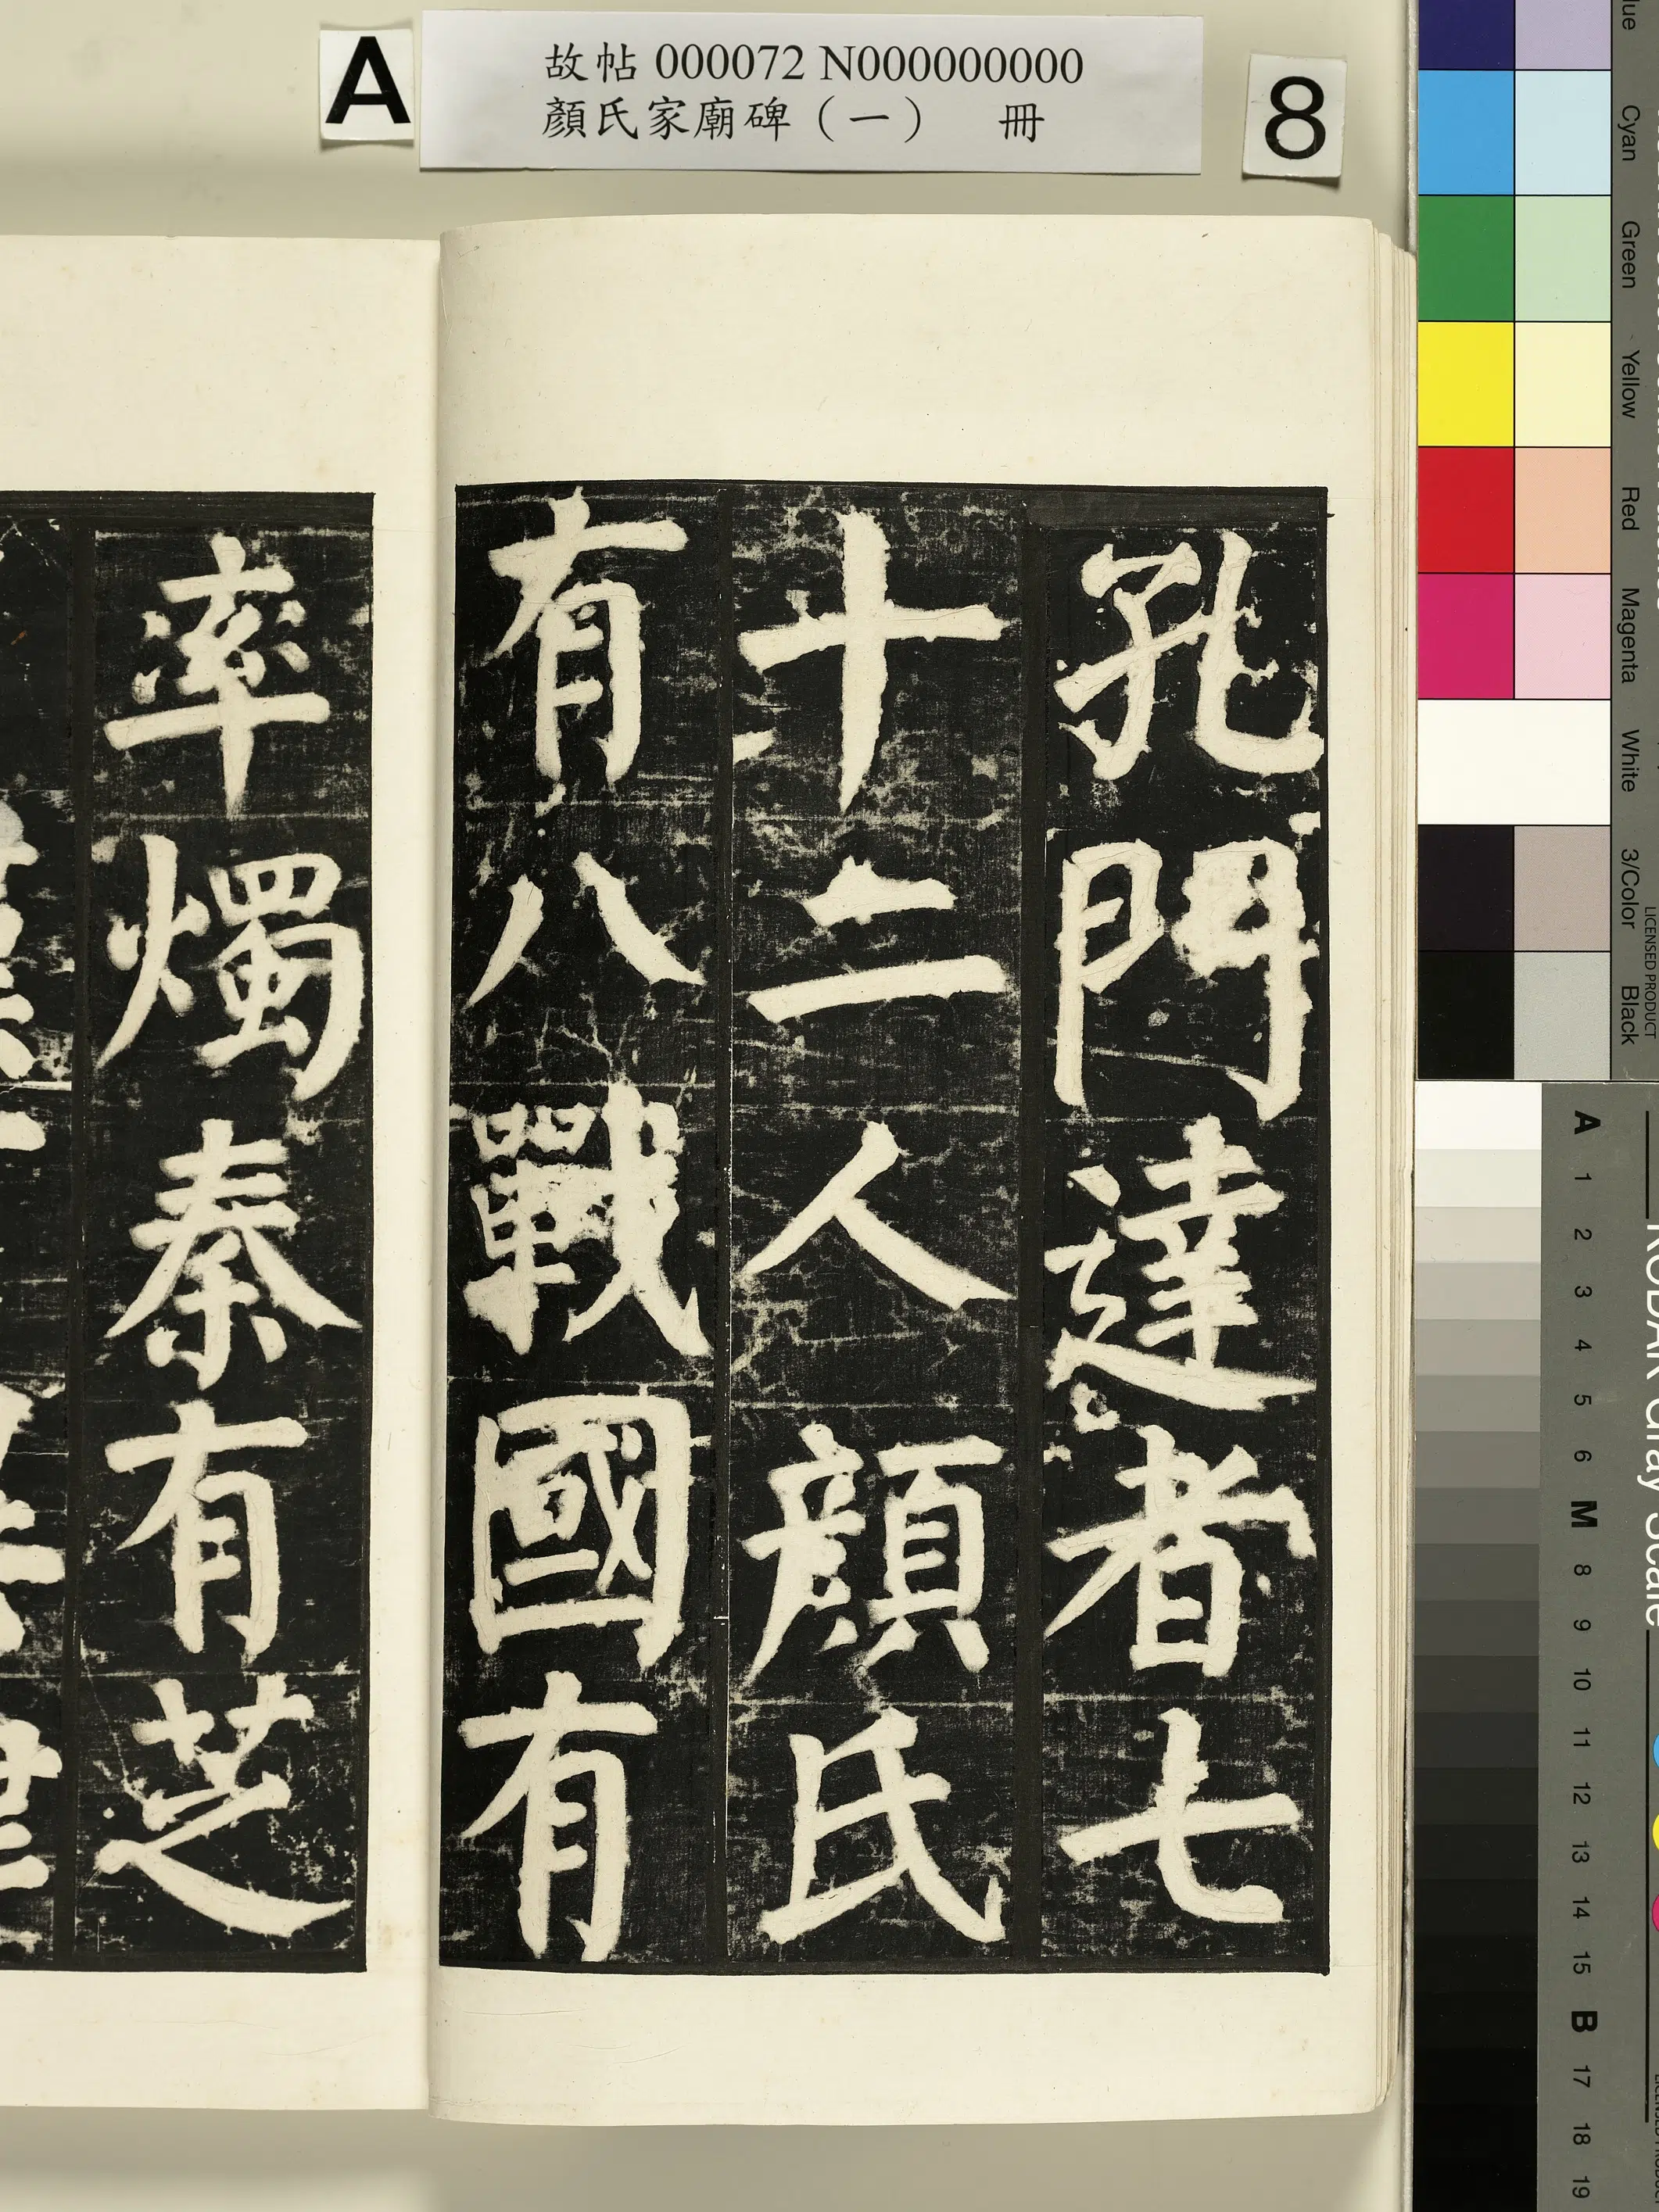 A
故帖 000072 N000000000
顏氏家廟碑（一） 冊
8
孔門達者七
十二人顏氏
有八戰國有
率燭秦有芝
Cyan
Green
Yellow
Red
Magenta
White
3/Color
Black
LICENSED PRODUCT
KODAK Gray Scale
A
1
2
3
4
5
6
M
8
9
10
11
12
13
14
15
B
17
18
19